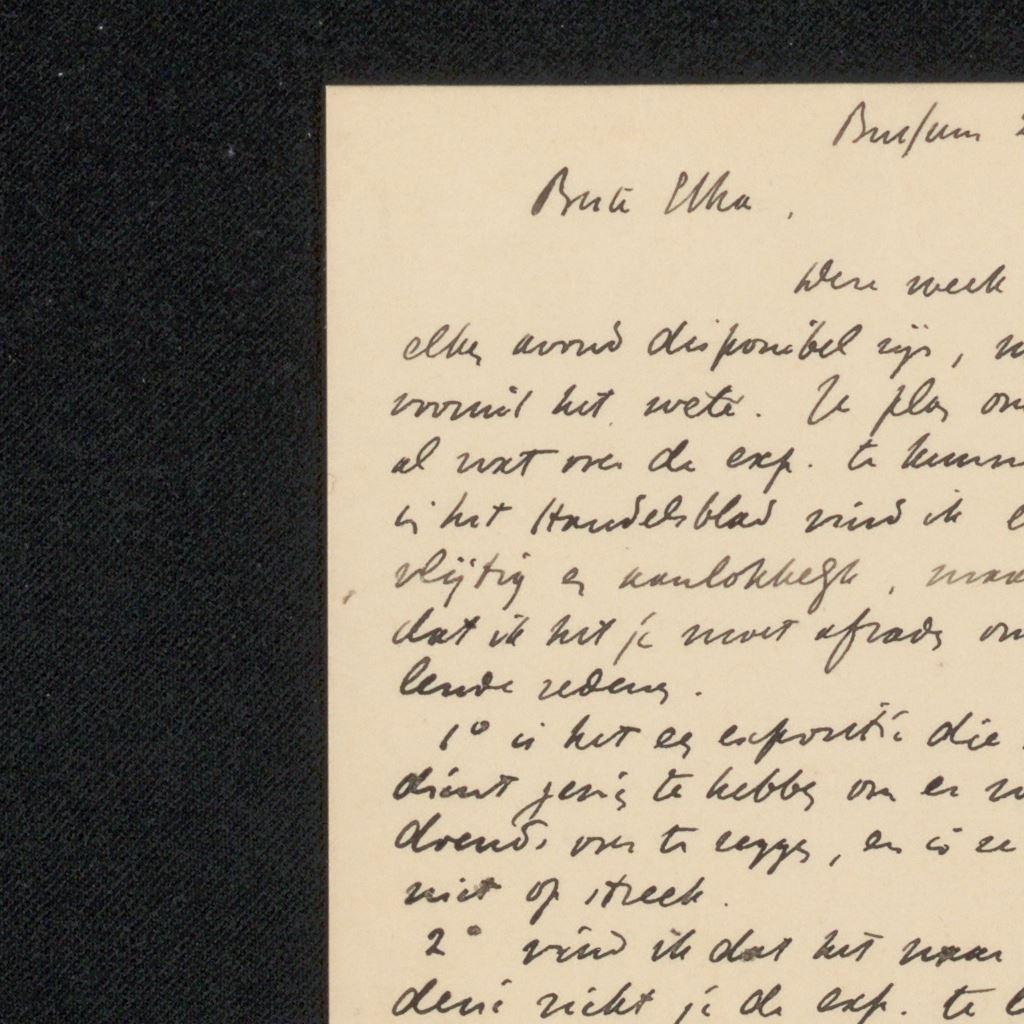 Bussum 2
Beste Elka,
Deze week
elken avond disponibel zijn,
vooruit het weten. Je plan om
al wat over de exp. te kunn
in het Handelsblad vind ik
vlijtig en aanlokkelijk, maar
dat ik het je moet afraden om
lende redenen.
1° is het een expositie die
dient gezien te hebben om er
doends over te zeggen, en is ze
niet op streek.
2° vind ik dat het naar
dien richt je de exp. te